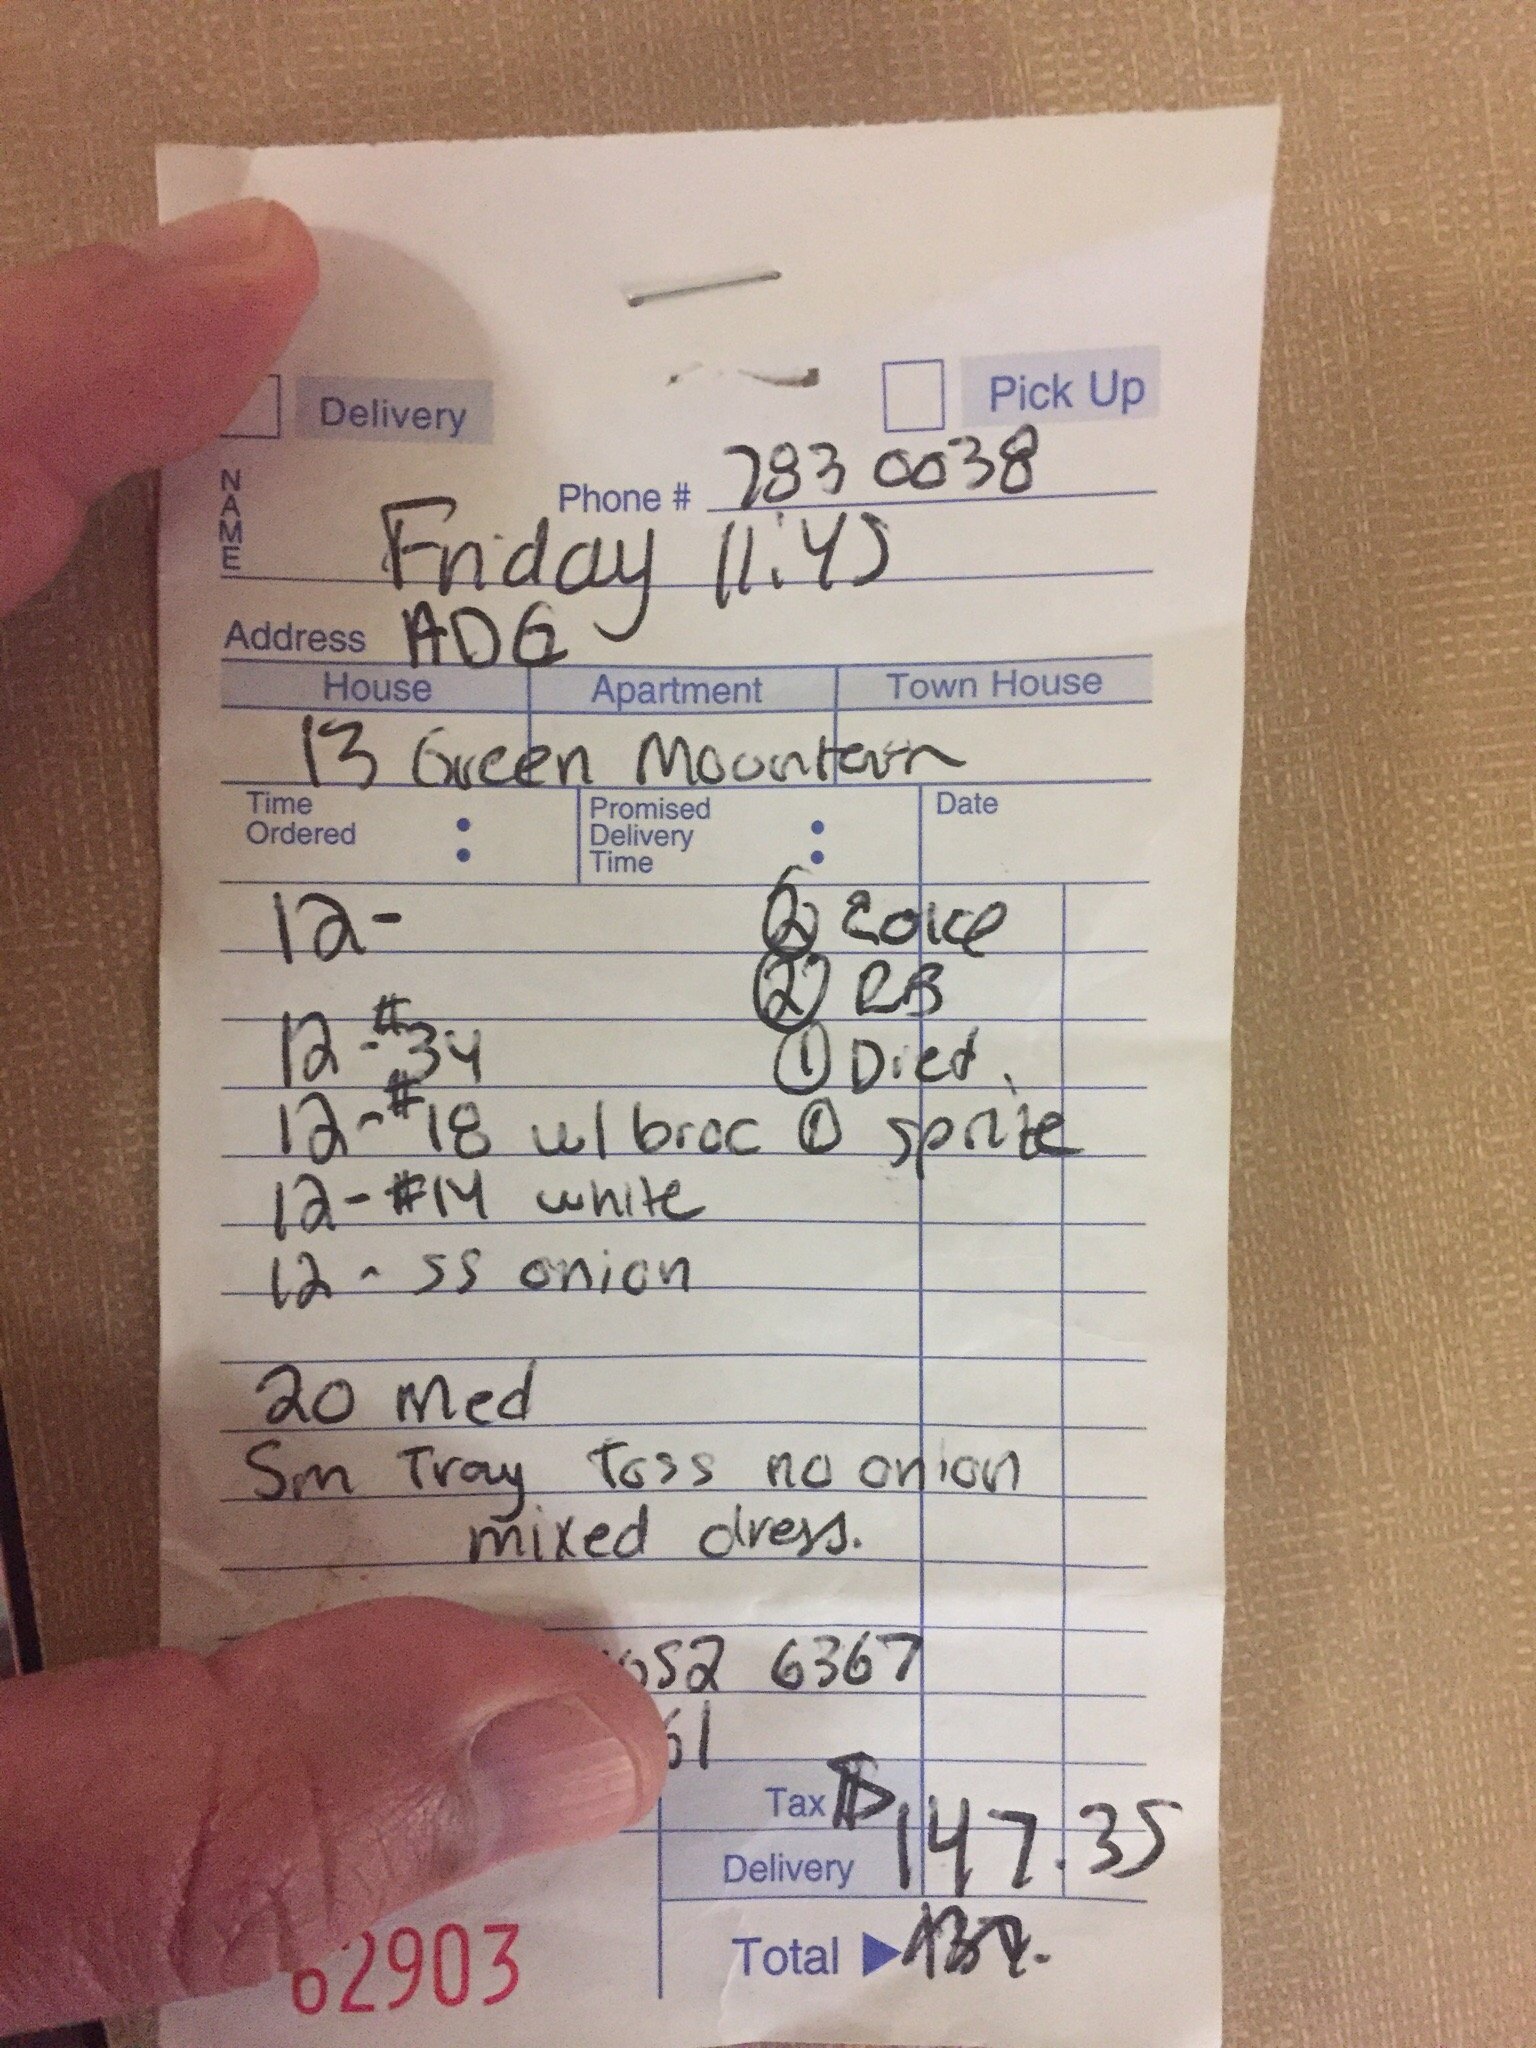 Delivery Pick Up
NAME
Phone # 783 0038
Friday 11:45
Address ADG
House Apartment Town House
13 Green Mountain
Time Ordered : Promised Delivery Time : Date
12- (2) Coke
(2) RB
12-#34 (1) Diet
12-#18 w/ broc (1) sprite
12-#14 white
12- SS onion
20 Med
Sm Tray Toss no onion
mixed dress.
652 6367
61
Tax $147.35
Delivery
Total
62903